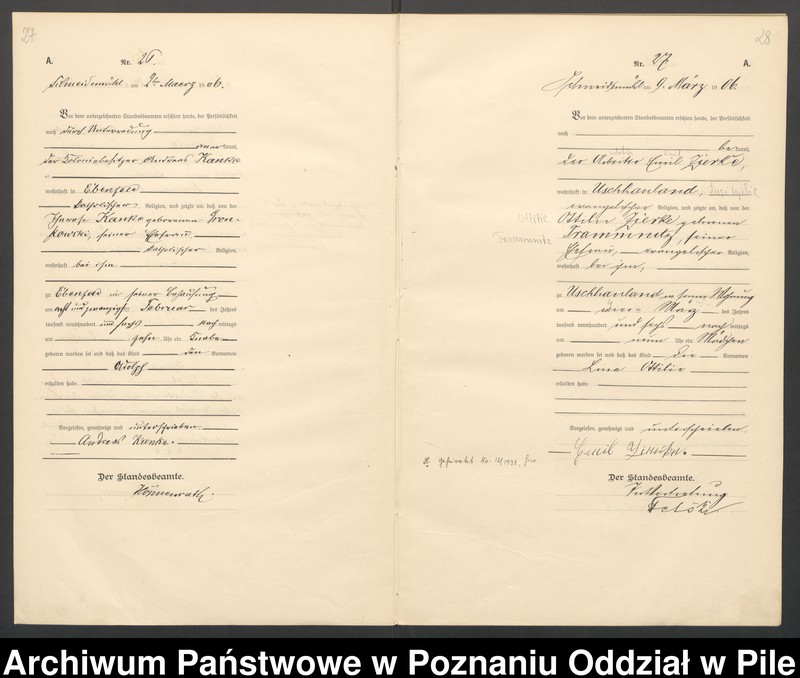 27
A.
Nr. 26.
Schneidemühl am 2ten Maerz 1906.
Vor dem unterzeichneten Standesbeamten erschien heute, der Persönlichkeit
nach durch Unterredung
kannt,
der Kolonialbesitzer Andreas Kanke
wohnhaft in Ebenfeld
katholischer Religion, und zeigte an, daß von der
Kanke geborenen
seiner Ehefrau
katholischer Religion,
wohnhaft bei ihm
zu Ebenfeld in seiner Behausung
am acht und zwanzigsten Februar des Jahres
tausend neunhundert und sechs Nachmittags
um zehn Uhr ein Knabe
geboren worden sei und daß das Kind den Vornamen
Adolf
erhalten habe.
Vorgelesen, genehmigt und unterschrieben.
Andreas
Der Standesbeamte.
28
Nr. 27
A.
Schneidemühl am 9. März 1906.
Vor dem unterzeichneten Standesbeamten erschien heute, der Persönlichkeit
nach
be kannt,
der Arbeiter Emil Zierke,
wohnhaft in Uschhauland,
evangelischer Religion, und zeigte an, daß von der
Ottilie Zierke geborenen
Trammnitz, seiner
Ehefrau, evangelischer Religion,
wohnhaft bei ihm,
Ottilie
Trammnitz
zu Uschhauland in seiner Wohnung
am März des Jahres
tausend neunhundert und sechs nach mittags
um neun Uhr ein Mädchen
geboren worden sei und daß das Kind die Vornamen
Ottilie
erhalten habe.
Vorgelesen, genehmigt und unterschrieben.
Emil
geheiratet Nr.
Der Standesbeamte.
In Vertretung
Archiwum Państwowe w Poznaniu Oddział w Pile